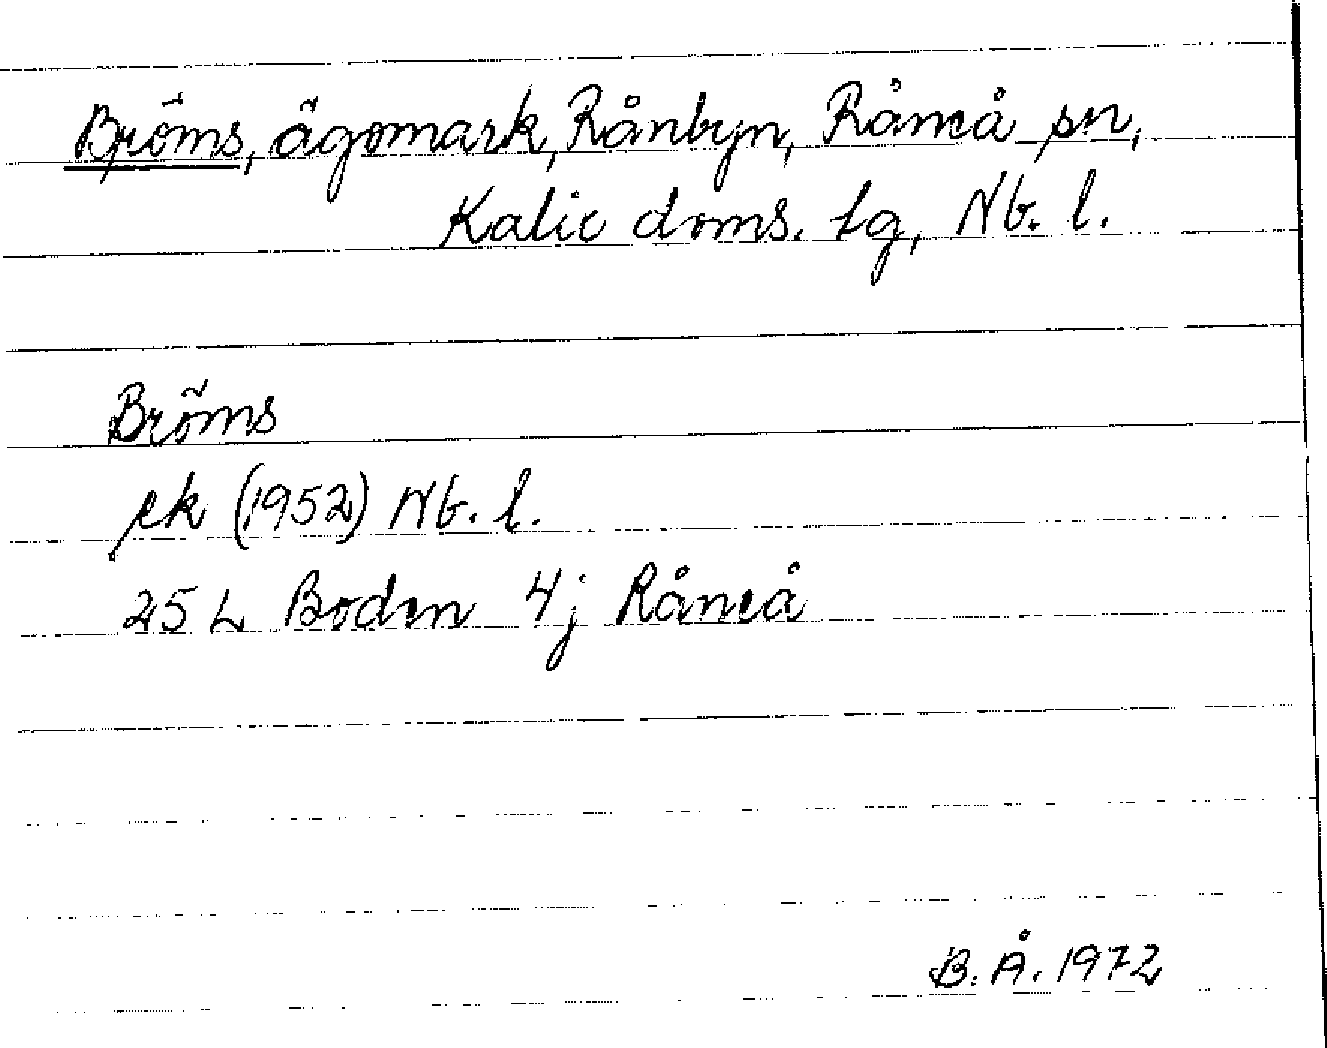 Bröms, ägomark, Rånbyn, Råneå sn,
Kalix doms. lg, Nb. l.
Bröms
ek (1952) Nb. l.
25 L Boden 4j Råneå
B. Å. 1972